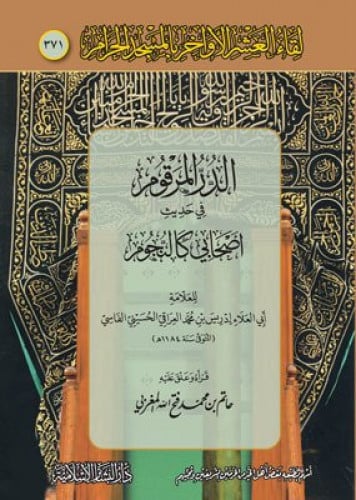 لقاء العشر الأواخر بالمسجد الحرام
٣٧١
الدر المرقوم
في حديث
أصحابي كالنجوم
للعلامة
أبي العلاء إدريس بن محمد العراقي الحسيني الفاسي
(المتوفى سنة ١١٨٤هـ)
قرأه وعلق عليه
حاتم بن محمد فتح الله المغربي
أسهم بطبعه بعض أهل الخير من الحرمين الشريفين ومحبيهم
دار البشائر الإسلامية